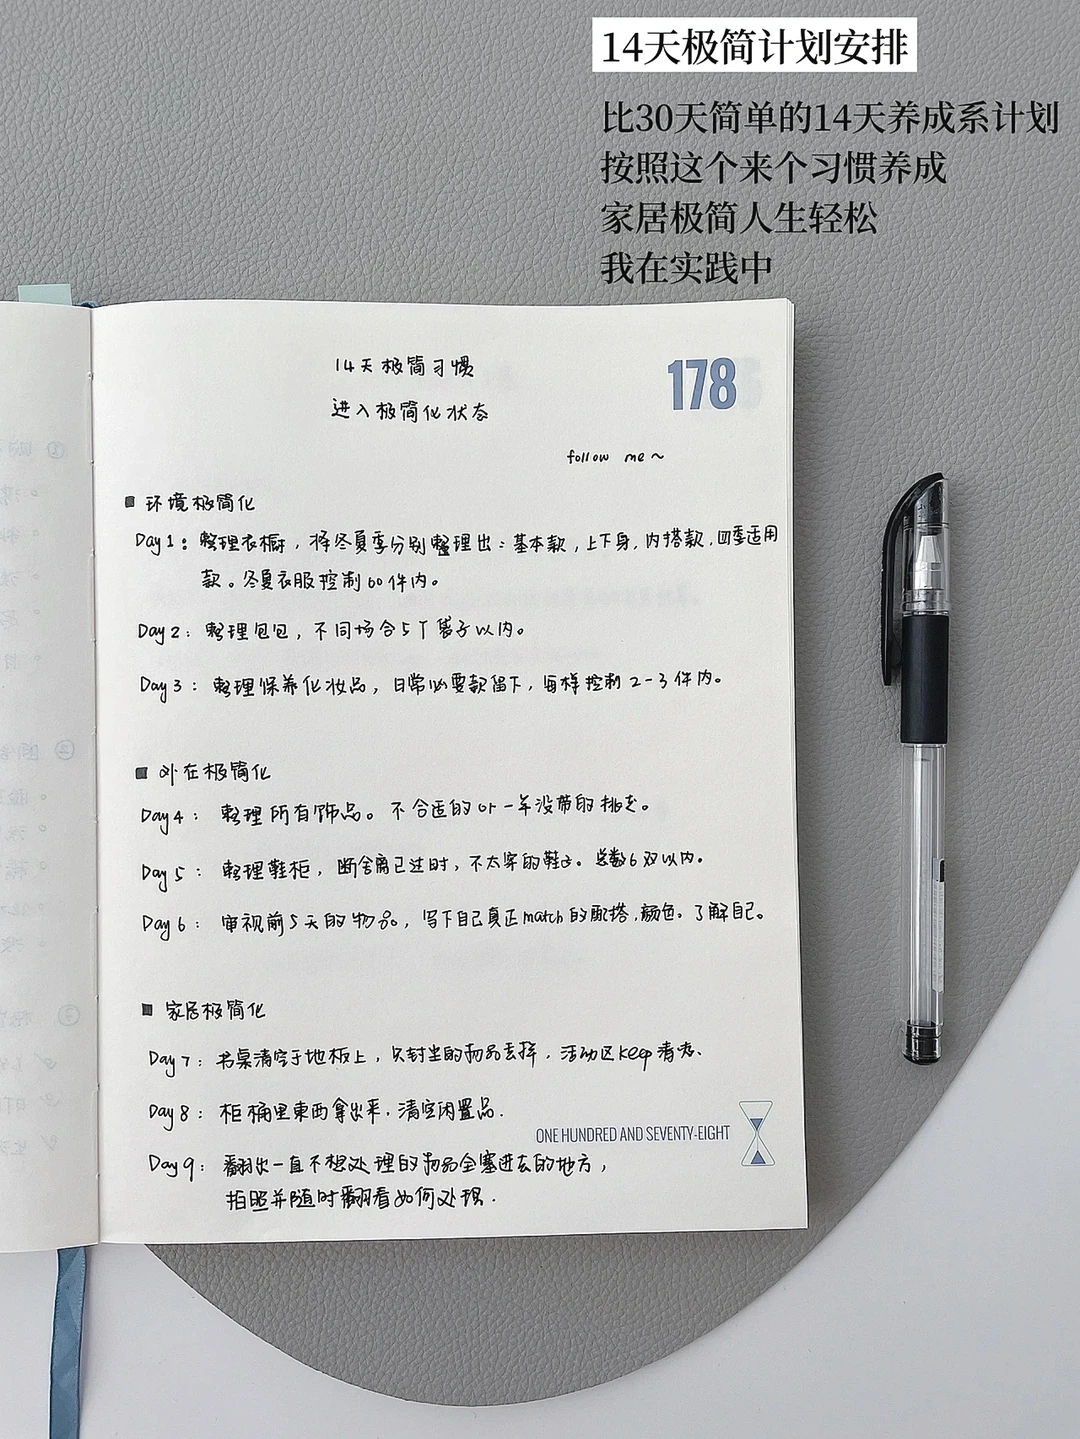 14天极简计划安排
比30天简单的14天养成系计划
按照这个来个习惯养成
家居极简人生轻松
我在实践中
14天极简习惯
进入极简化状态
178
follow me ~
■ 环境极简化
Day 1：整理衣橱，将冬夏季分别整理出：基本款，上下身，内搭款，四季适用
款。冬夏衣服控制60件内。
Day 2：整理包包，不同场合5个袋子以内。
Day 3：整理保养化妆品，日常必要款留下，每样控制2-3件内。
■ 外在极简化
Day 4：整理所有饰品。不合适的or一年没带的挑走。
Day 5：整理鞋柜，断舍离已过时，不太穿的鞋子。总数6双以内。
Day 6：审视前5天的物品，写下自己真正match的配搭，颜色。了解自己。
■ 家居极简化
Day 7：书桌清空于地板上，久封尘的物品去掉，活动区keep清爽、
Day 8：柜桶里東西拿出来，清空闲置品．
ONE HUNDRED AND SEVENTY-EIGHT
Day 9：翻出一直不想处理的物品全塞进去的地方，
拍照并随时翻看如何处理．